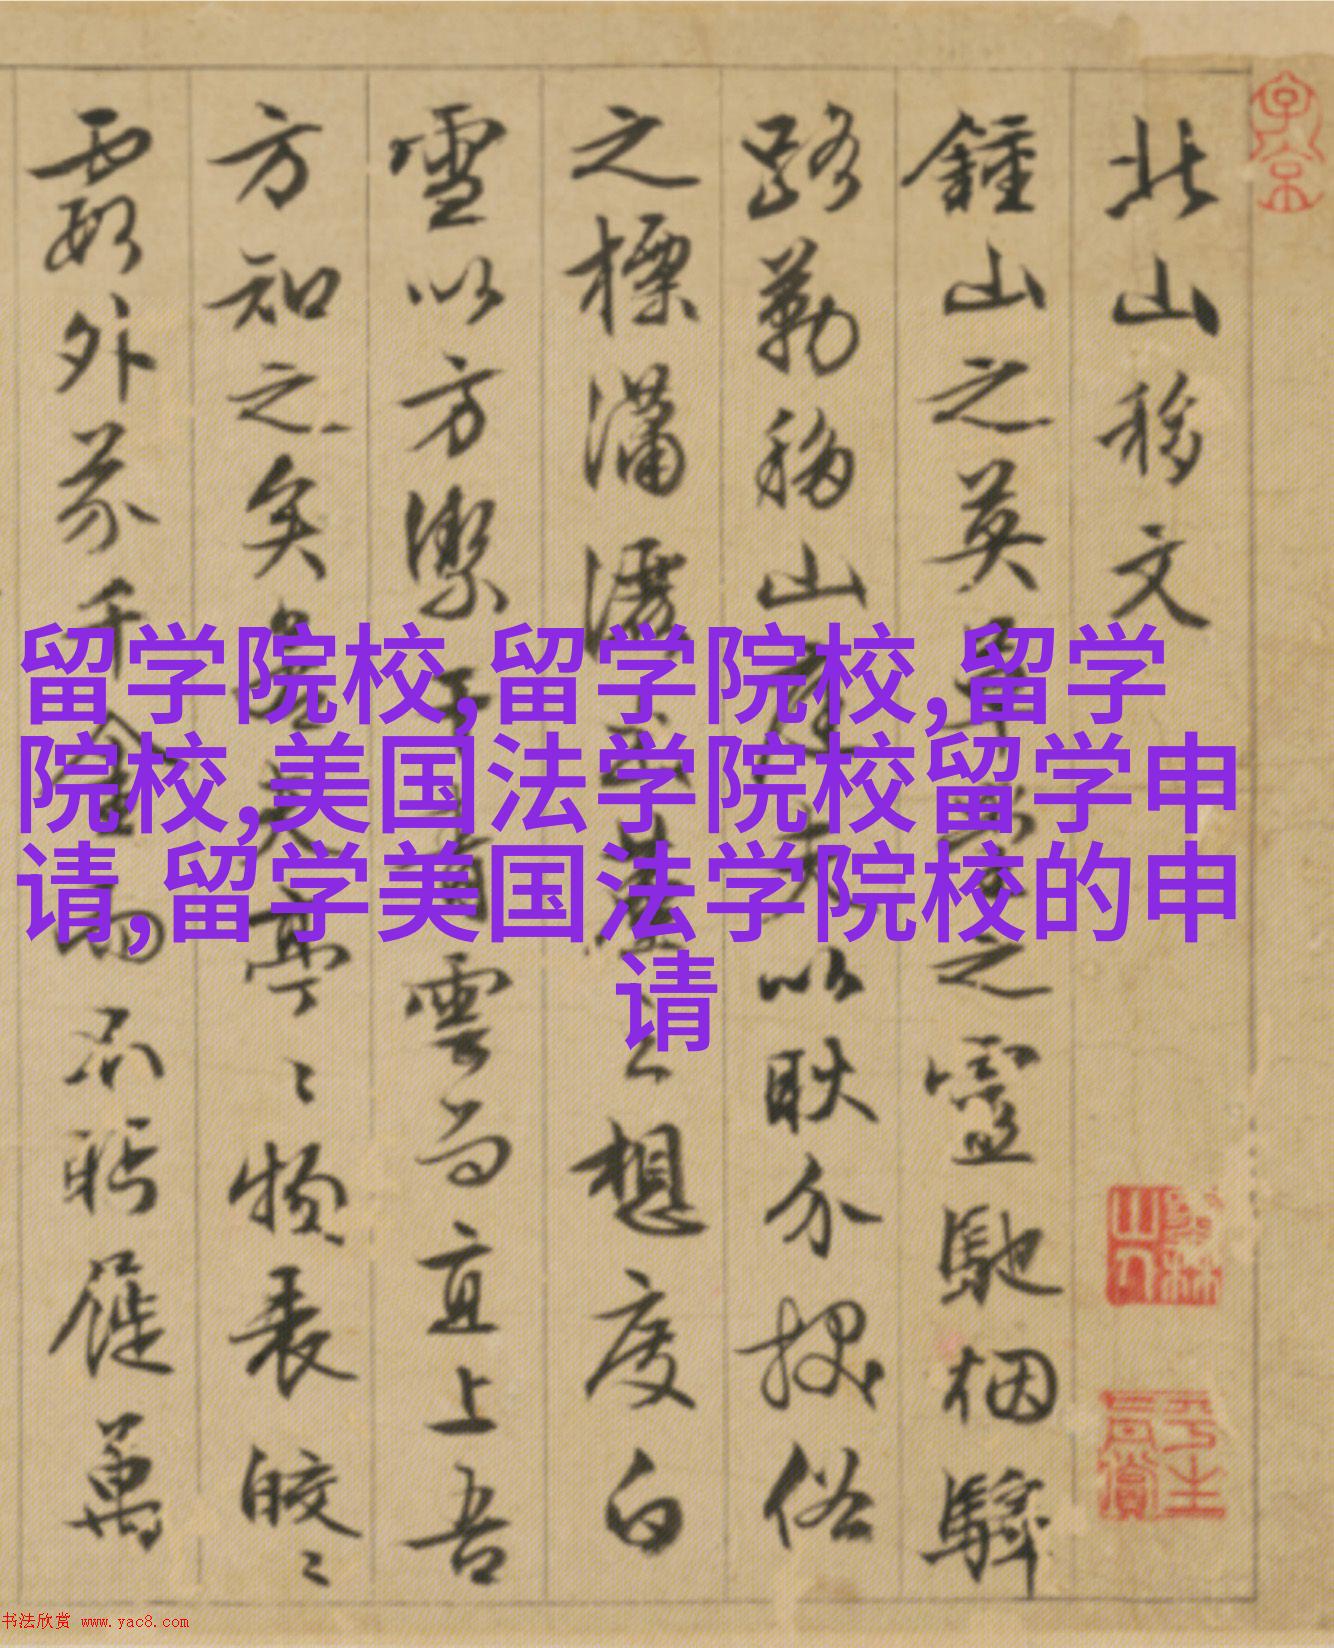 北山移文
鍾山之英草堂之靈馳烟驛
路勒移山庭夫以耿介拔俗
之標瀟灑出塵之想度白
雪以方潔干青雲而直上吾
方知之矣若其亭〻物表皎〻
霞外芥千金而不屣萬
留学院校,留学院校,留学
院校,美国法学院校留学申
请,留学美国法学院校的申
请
书法欣赏 www.yac8.com